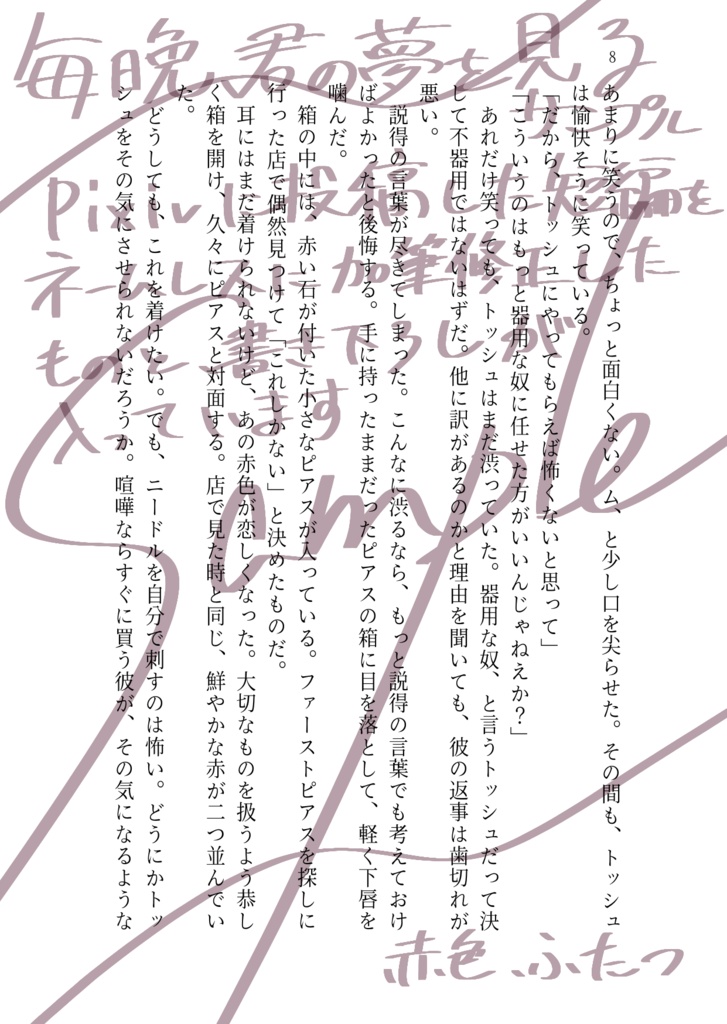 毎晩、君の夢を見る
サンプル
pixivに投稿した短編を
ネームレスに加筆修正した
ものと、書き下ろしが
入っています
Sample
8
あまりに笑うので、ちょっと面白くない。ム、と少し口を尖らせた。その間も、トッシュ
は愉快そうに笑っている。
「だから、トッシュにやってもらえば怖くないと思って」
「こういうのはもっと器用な奴に任せた方がいいんじゃねえか?」
あれだけ笑っても、トッシュはまだ渋っていた。器用な奴、と言うトッシュだって決
して不器用ではないはずだ。他に訳があるのかと理由を聞いても、彼の返事は歯切れが
悪い。
説得の言葉が尽きてしまった。こんなに渋るなら、もっと説得の言葉でも考えておけ
ばよかったと後悔する。手に持ったままだったピアスの箱に目を落として、軽く下唇を
噛んだ。
箱の中には、赤い石が付いた小さなピアスが入っている。ファーストピアスを探しに
行った店で偶然見つけて「これしかない」と決めたものだ。
耳にはまだ着けられないけど、あの赤色が恋しくなった。大切なものを扱うよう恭し
く箱を開け、久々にピアスと対面する。店で見た時と同じ、鮮やかな赤が二つ並んでい
た。
どうしても、これを着けたい。でも、ニードルを自分で刺すのは怖い。どうにかトッ
シュをその気にさせられないだろうか。喧嘩ならすぐに買う彼が、その気になるような
赤色ふたつ